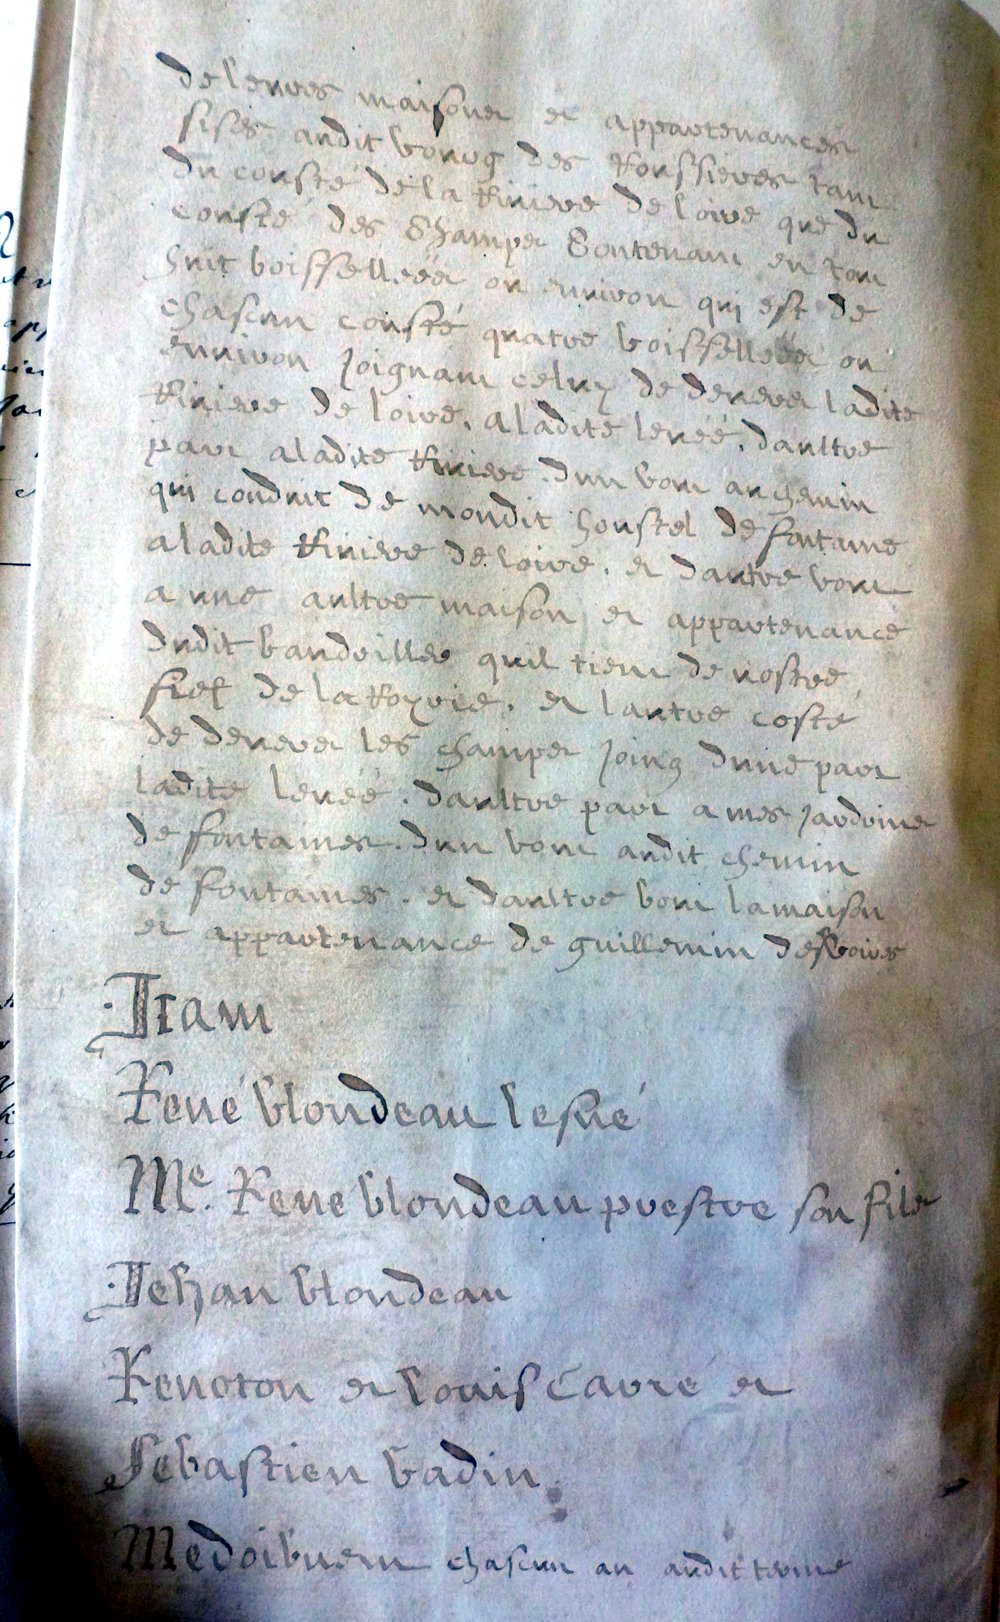 de leurs maisons et appartenances
sises audit bourg des Roussieres tant
du cousté de la Riviere de loire que du
cousté des Champs Contenant en tout
huit boissellées ou environ qui est de
chascun cousté quatre boissellées ou
environ joignant celuy de devers ladite
Riviere de loire, a ladite levéé, daultre
part a ladite Riviere, dun bout au chemin
qui conduit de mondit houstel de fontaine
a ladite Riviere de loire, et dautre bout
a une aultre maison et appartenance
dudit baudrillee quil tient de nostre
fief de la Royrie, et lautre costé
de devers les champs joing dune part
ladite levéé, daultre part a mes jardrins
de fontaines, dun bout audit chemin
de fontaines, et daultre bout la maison
et appartenance de guillemin
Item
René blondeau lesné
Me. René blondeau prestre son fils
Jehan blondeau
Renoton et louis Cavré et
Sebastien badin
Me doibvent chascun an audit terme